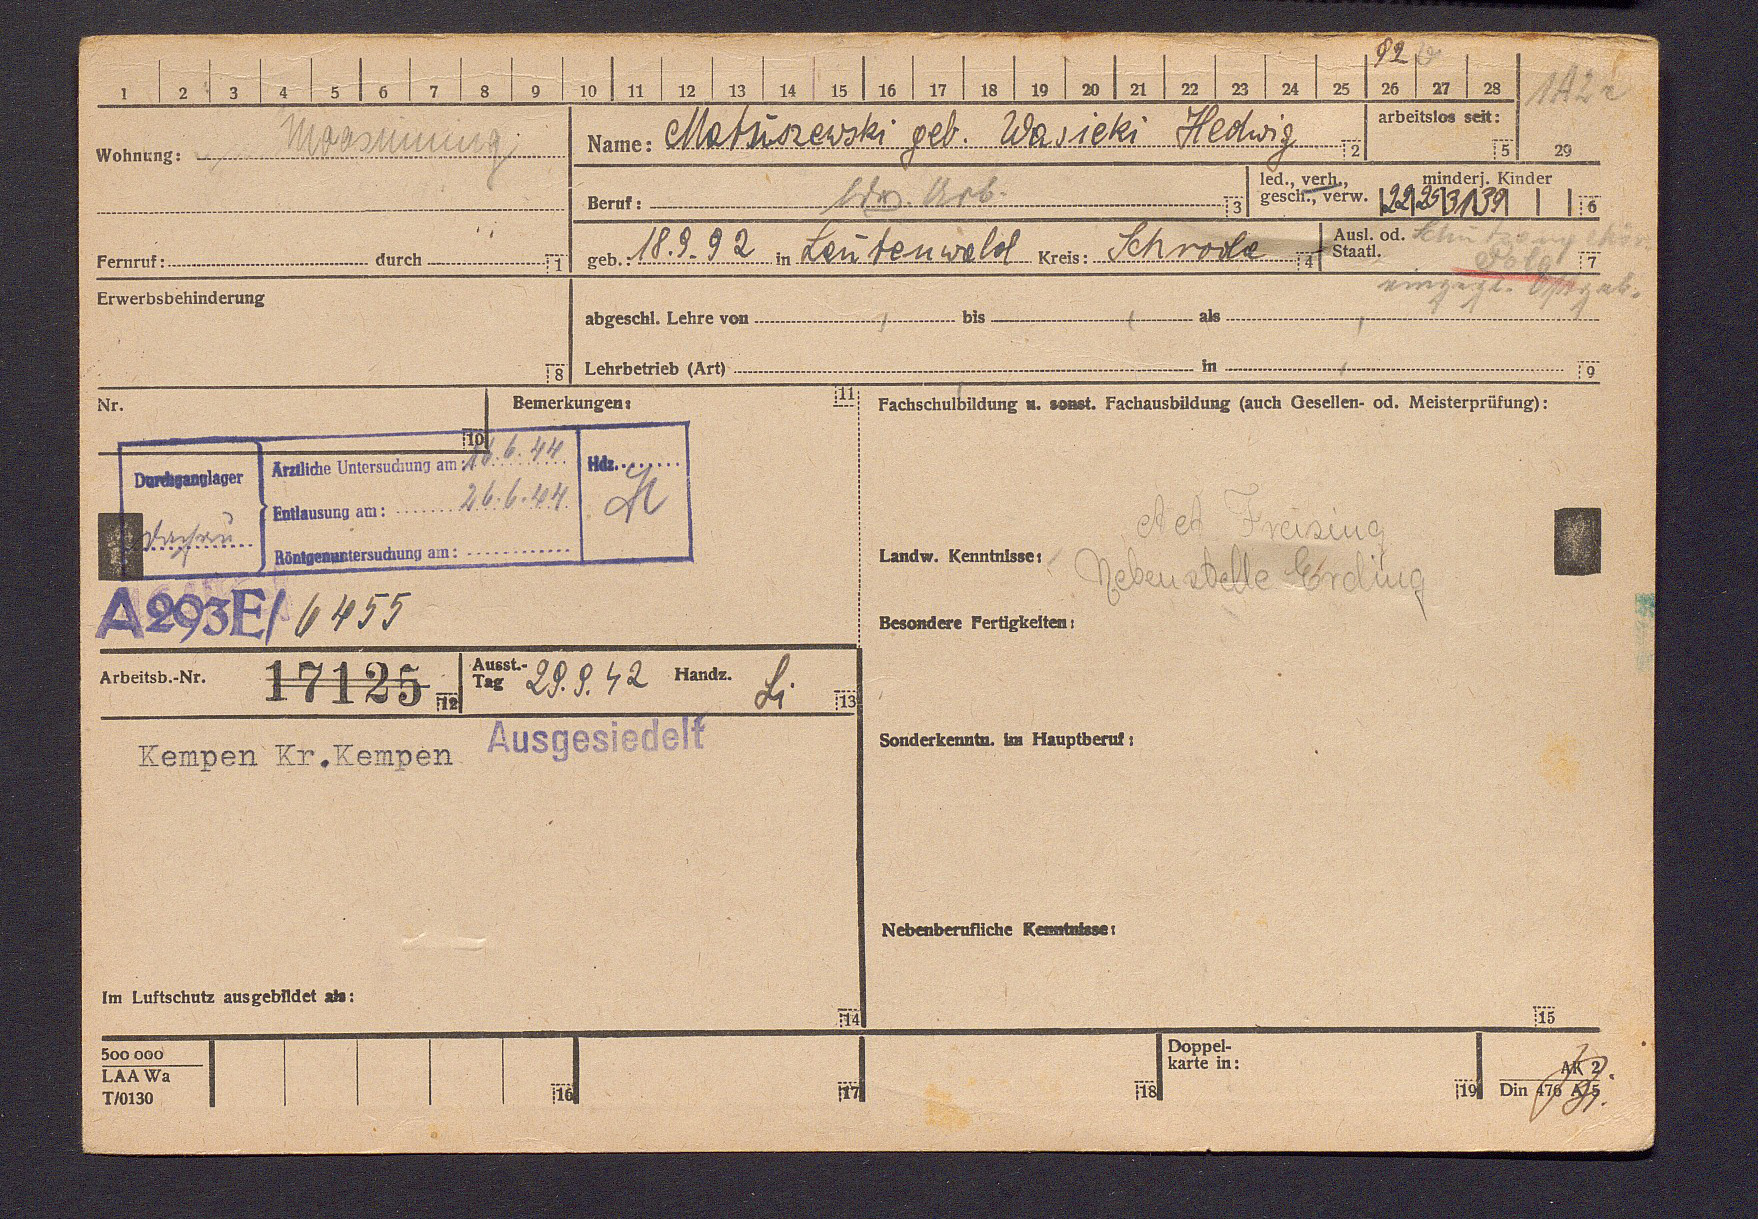 92
1 2 3 4 5 6 7 8 9 10 11 12 13 14 15 16 17 18 19 20 21 22 23 24 25 26 27 28
1A2a
Wohnung: Moosinning
Name: Matuszewski geb. Wasicki Hedwig 2
arbeitslos seit: 5
29
Beruf: ldw. Arb. 3
led., verh., gesch., verw.
minderj. Kinder
22 25 31 39 6
Fernruf: durch 1
geb.: 18.9.92 in Lautenwald Kreis: Schroda 4
Ausl. od. Staatl. Schutzangehör.
Pole 7
eingegl. Ostgeb.
Erwerbsbehinderung 8
abgeschl. Lehre von bis als
Lehrbetrieb (Art) in 9
Nr. 10
Bemerkungen: 11
Durchganglager
Dachau
Ärztliche Untersuchung am: 26.6.44
Entlausung am: 26.6.44
Röntgenuntersuchung am:
Hdz.
A293E/ 6455
Arbeitsb.-Nr. 17125 12
Ausst.-Tag 29.9.42 Handz. Li 13
Kempen Kr.Kempen
Ausgesiedelt
Im Luftschutz ausgebildet als: 14
Fachschulbildung u. sonst. Fachausbildung (auch Gesellen- od. Meisterprüfung):
AA Freising
Landw. Kenntnisse:
Nebenstelle Erding
Besondere Fertigkeiten:
Sonderkenntn. im Hauptberuf:
Nebenberufliche Kenntnisse:
15
500 000
LAA Wa
T/0130
16
17
18
Doppel-
karte in: 19
AK 2
Din 476 A 5